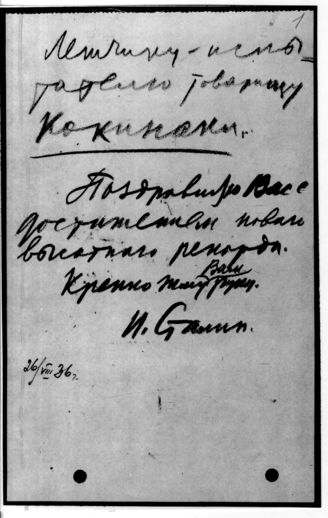 1
Летчику-испы-
тателю товарищу
Коккинаки.
Поздравляю Вас с
достижением нового
высотного рекорда.
Крепко жму Вашу руку.
И. Сталин.
26/VIII 36 г.